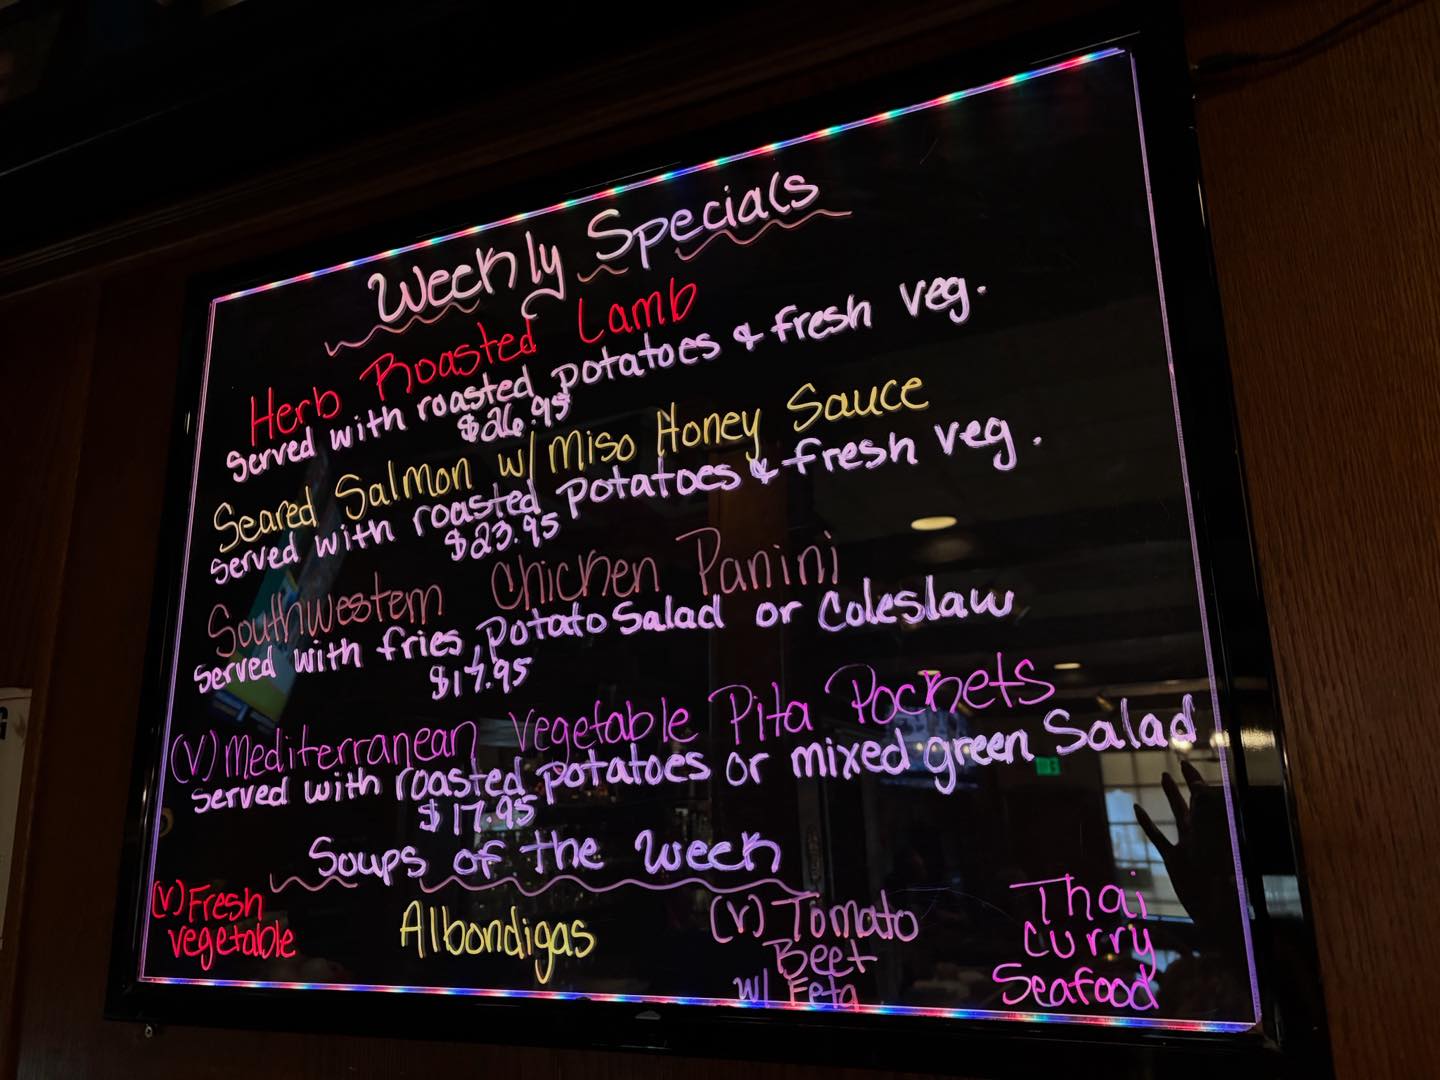 Weekly Specials
Herb Roasted Lamb
Served with roasted potatoes & fresh veg.
$26.95
Seared Salmon w/ Miso Honey Sauce
Served with roasted potatoes & fresh veg.
$23.95
Southwestern Chicken Panini
Served with fries, potato Salad or Coleslaw
$17.95
(V) Mediterranean Vegetable Pita Pockets
Served with roasted potatoes or mixed green Salad
$17.95
Soups of the Week
(V) Fresh
vegetable
Albondigas
(V) Tomato
Beet
w/ Feta
Thai
Curry
Seafood